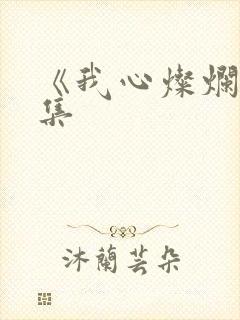 《我心燦爛
集
沐蘭芸朵